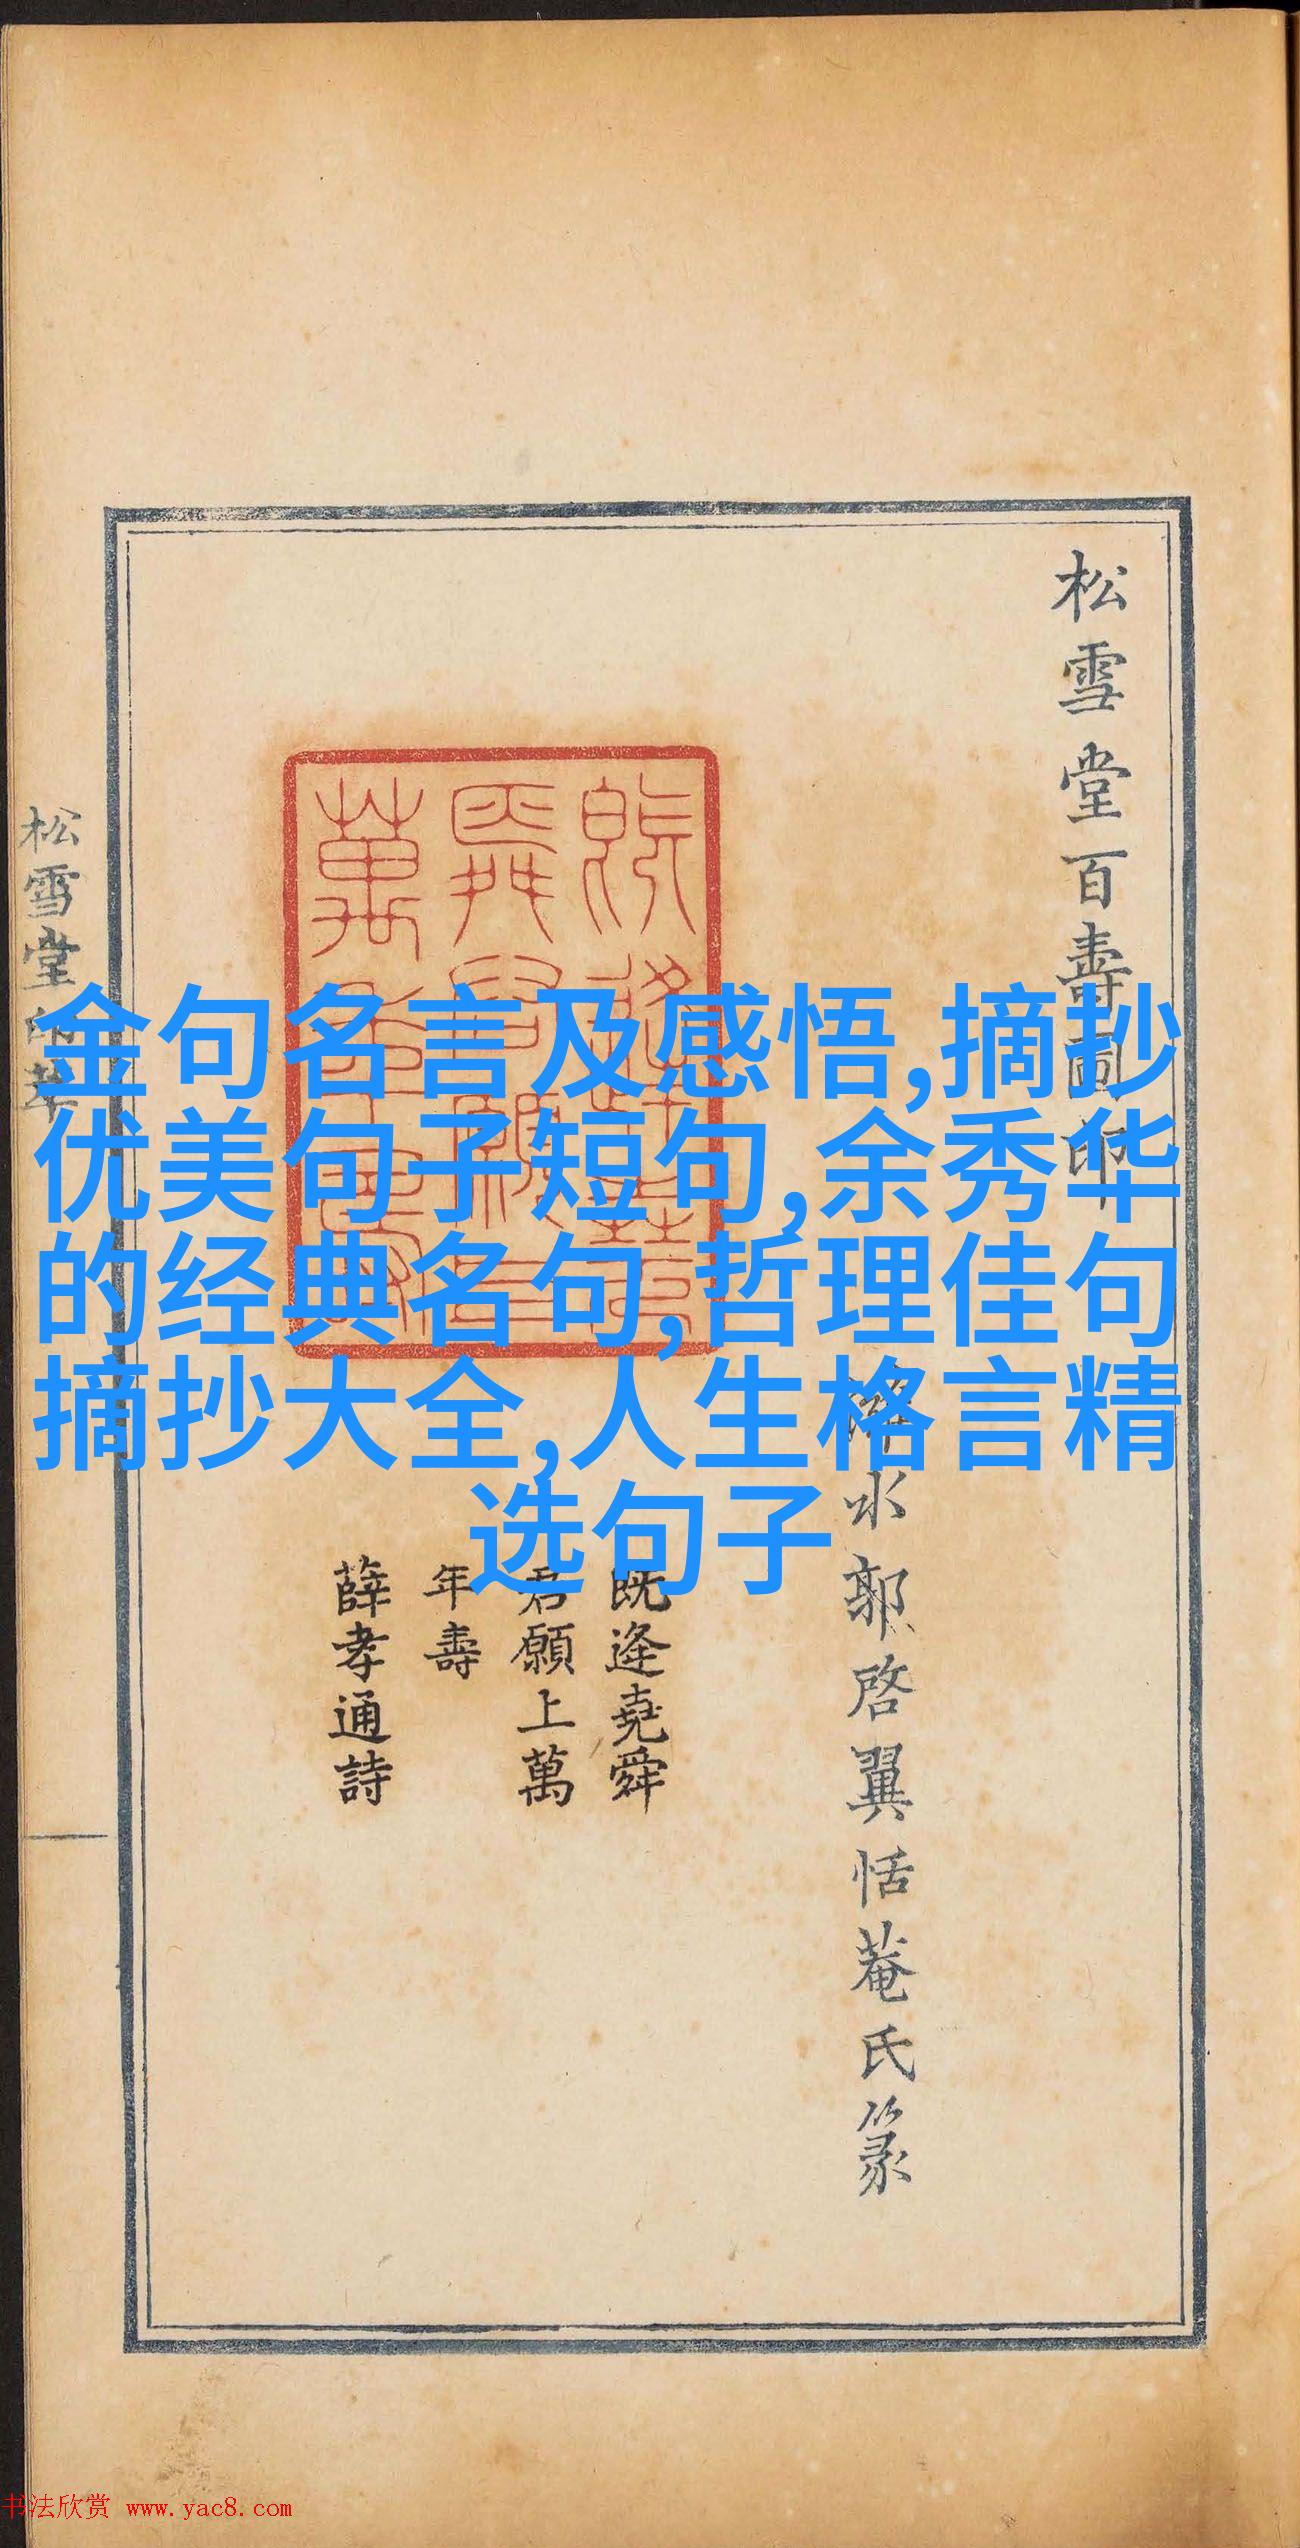 松雪堂百壽圖印
金句名言及感悟,摘抄
优美句子短句,余秀华
的经典名句,哲理佳句
摘抄大全,人生格言精
选句子
水郭啓翼恬菴氏篆
既逢堯舜
君願上萬
年壽
薛孝通詩
松雪堂
书法欣赏 www.yac8.com